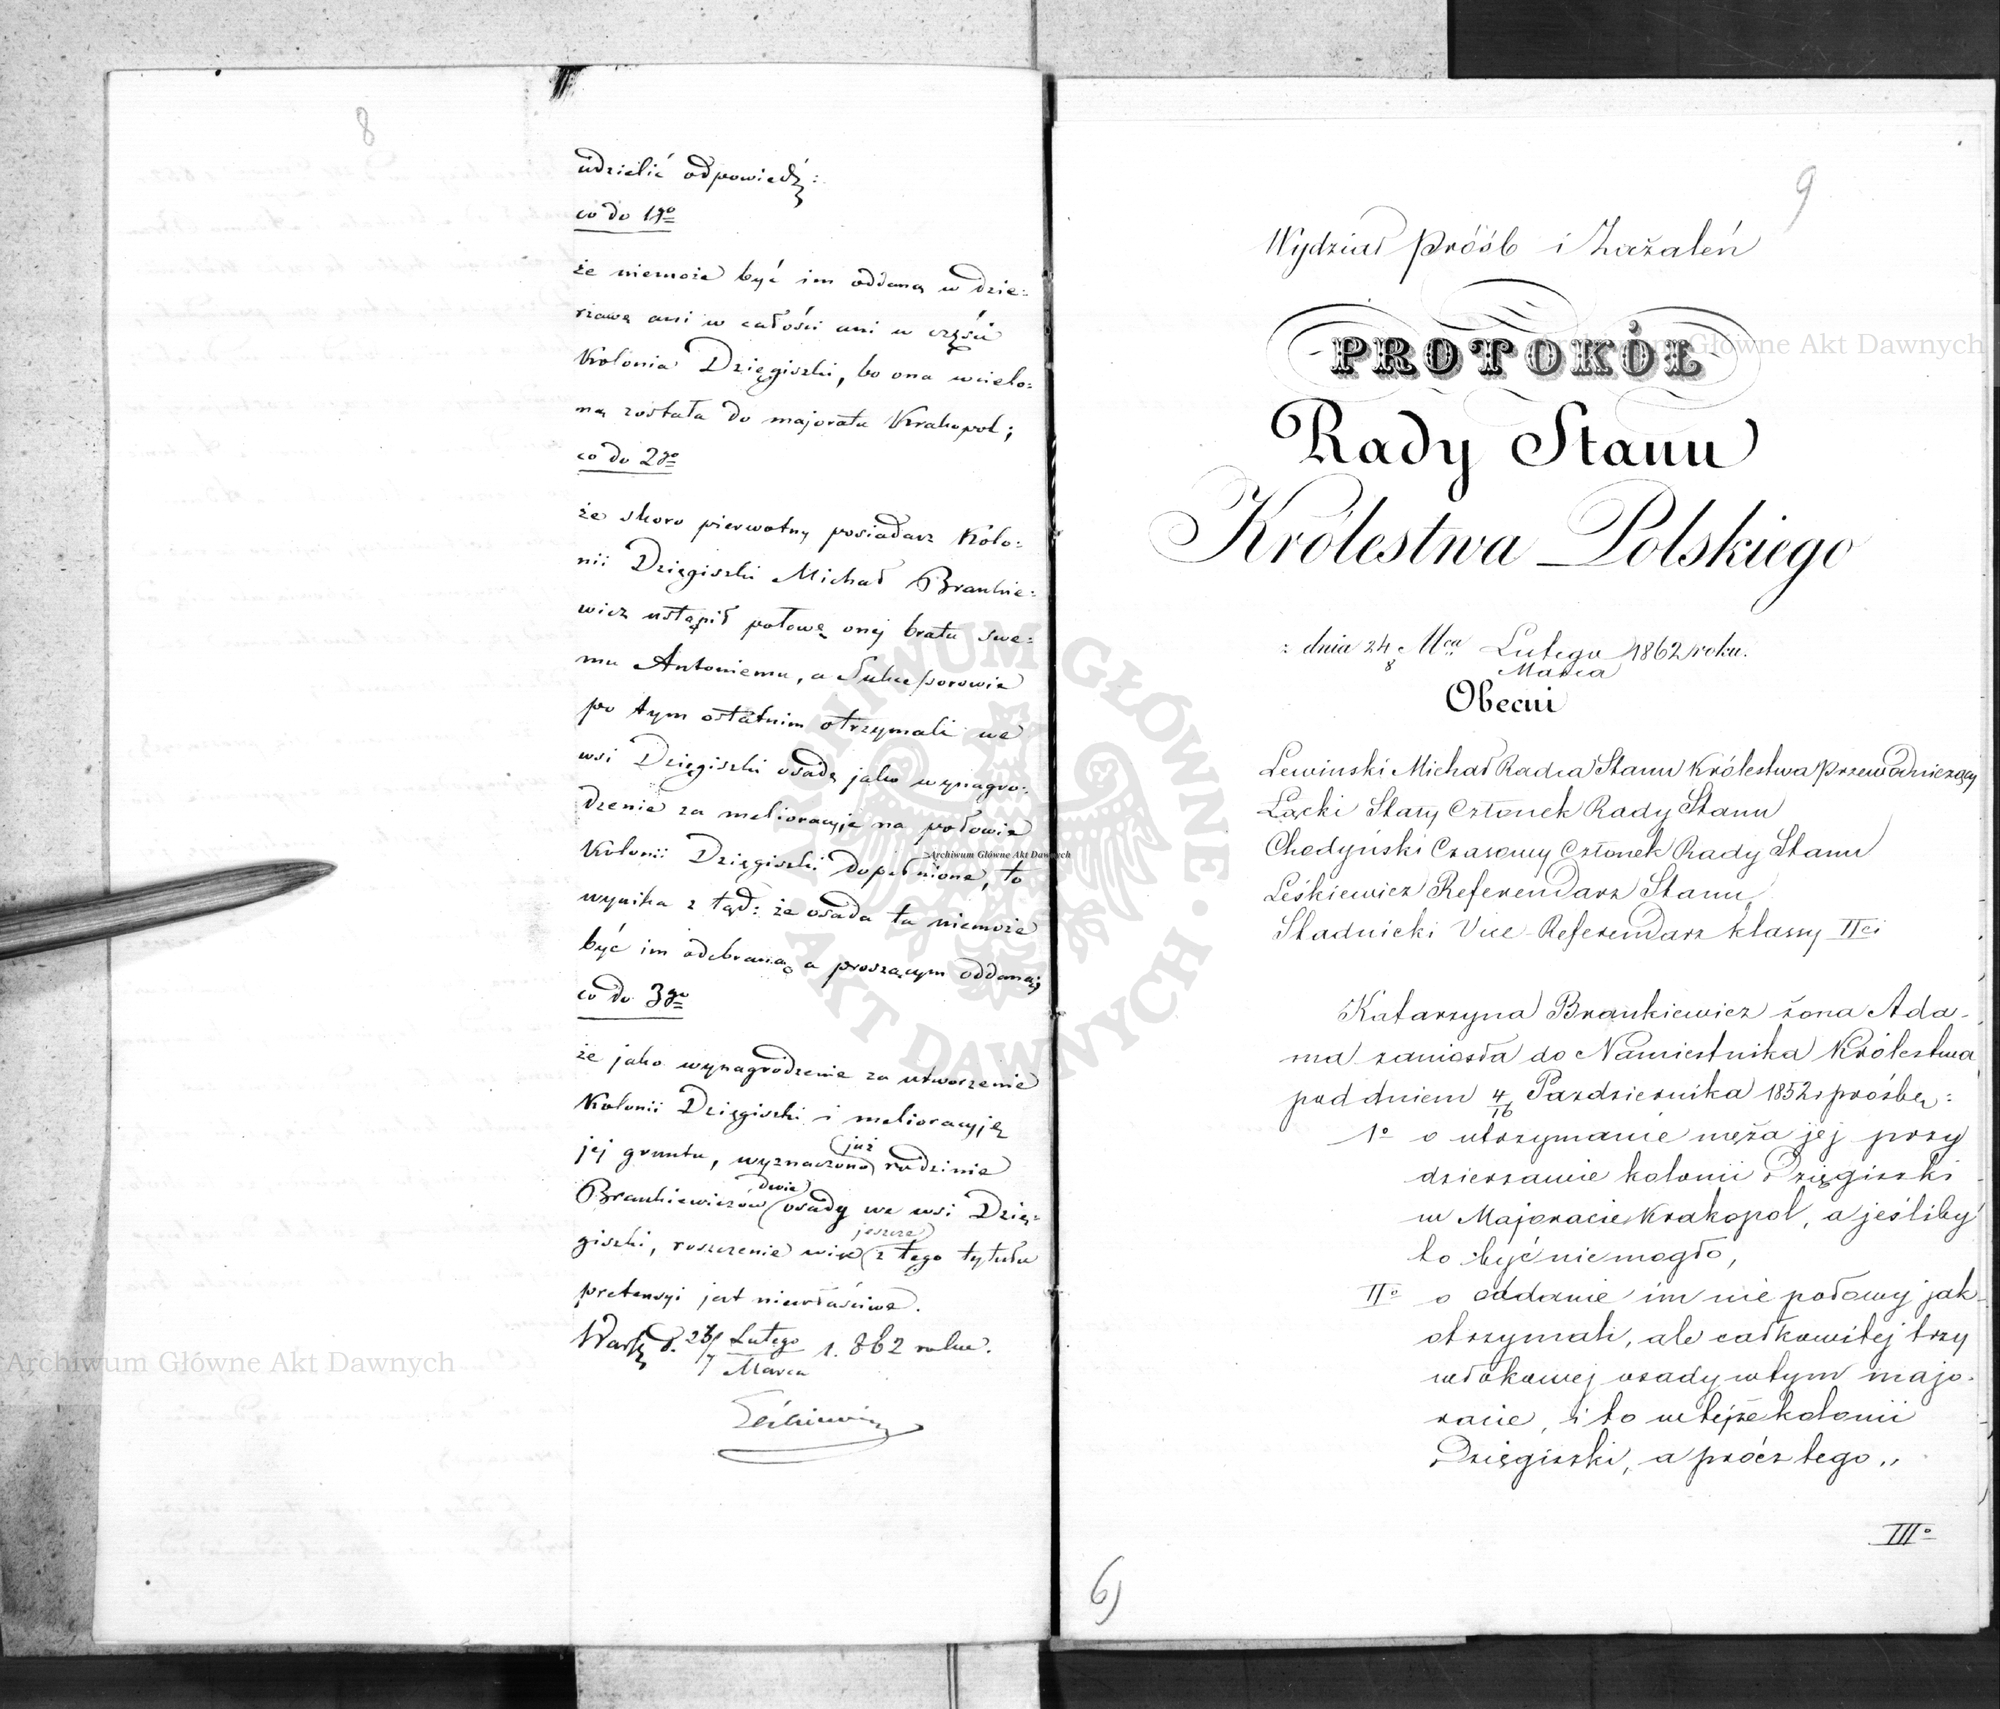 8
udzielić odpowiedź:
co do 1go
że niemoże być im oddaną w dzie:
rzawę ani w całości ani w części
Kolonia Dzięgiszki, bo ona wcielo:
ną została do majoratu Krakopol;
co do 2go
że skoro pierwotny posiadacz Kolo:
nii Dzięgiszki Michał Brankie:
wicz ustąpił połowę onej bratu swe:
mu Antoniemu, a Sukcessorowie
po tym ostatnim otrzymali we
wsi Dzięgiszki osadę jako wynagro:
dzenie za melioracyje na połowie
Kolonii Dzięgiszki dopełnione, to
wynika z tąd: że osada ta niemoże
być im odebraną a proszącym oddaną;
co do 3go
że jako wynagrodzenie za utworzenie
Kolonii Dzięgiszki i melioracyję
jej gruntu, wyznaczono już rodzinie
Brankiewiczów dwie osady we wsi Dzię:
giszki, roszczenie więc jeszcze z tego tytułu
pretensyi jest niewłaściwe.
Lutego
Marca 1.862 roku.
Leśkiewicz
9
Wydział Próśb i Zażaleń
PROTOKÓŁ
Rady Stanu
Królestwa Polskiego
z dnia 24/8 Mca Lutego 1862 roku.
Marca
Obecni
Lewinski Michał Radca Stanu Królestwa Przewodniczący
Łącki Stały Członek Rady Stanu
Chodyński Czasowy Członek Rady Stanu
Leśkiewicz Referendarz Stanu
Stadnicki Vice-Referendarz klassy IIej
Katarzyna Brankiewicz żona Ada-
ma zaniosła do Namiestnika Królestwa
pod dniem 4/16 Pazdziernika 1852 r prośbę:
1o o utrzymanie męża jej przy
dzierżawie kolonii Dzięgiszki
w Majoracie Krakopol, a jeśliby
to być niemogło,
IIo o oddanie im nie połowy jak
otrzymali, ale całkowitej trzy
włokowej osady w tym majo-
racie, i to w tejże kolonii
Dzięgiszki, a prócz tego „
IIIo
6)
Archiwum Główne Akt Dawnych
Archiwum Główne Akt Dawnych
Archiwum Główne Akt Dawnych
ARCHIWUM GŁÓWNE · AKT DAWNYCH ·